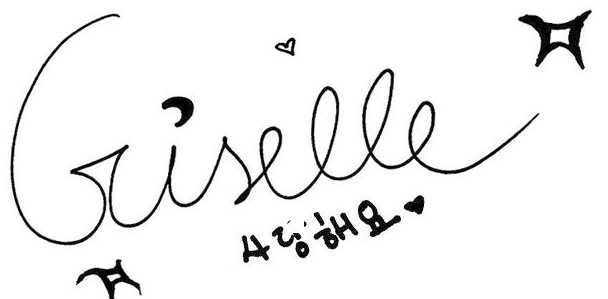 Giselle
사랑해요